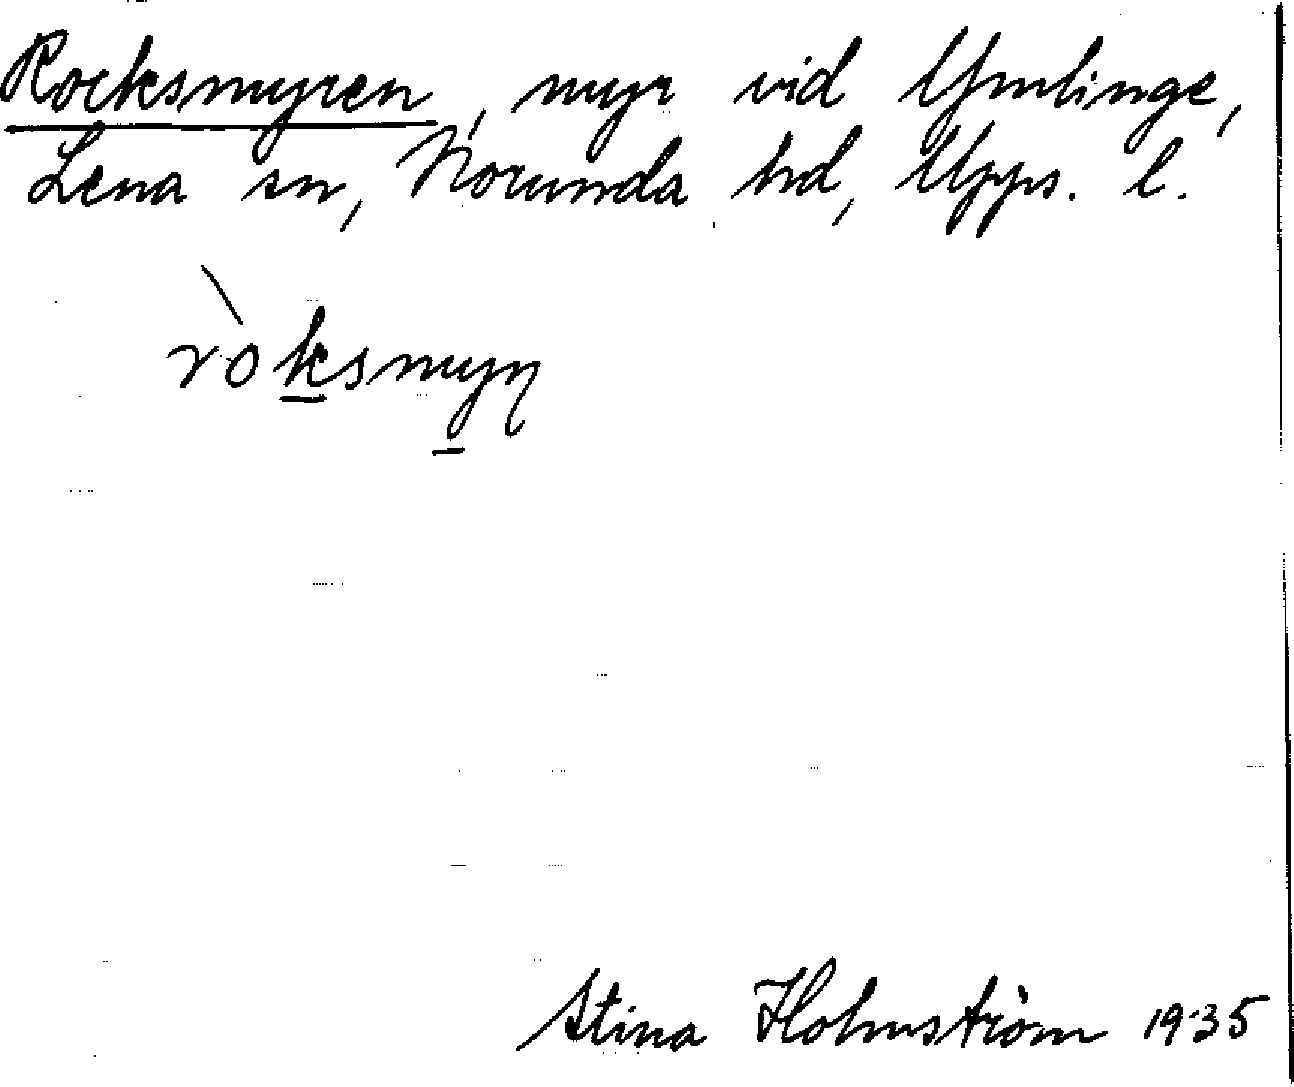 Rocksmyren, myr vid Ymlinge,
Lena sn, Norunda hd, Upps. l.
ròksmyɳ
Stina Holmström 1935